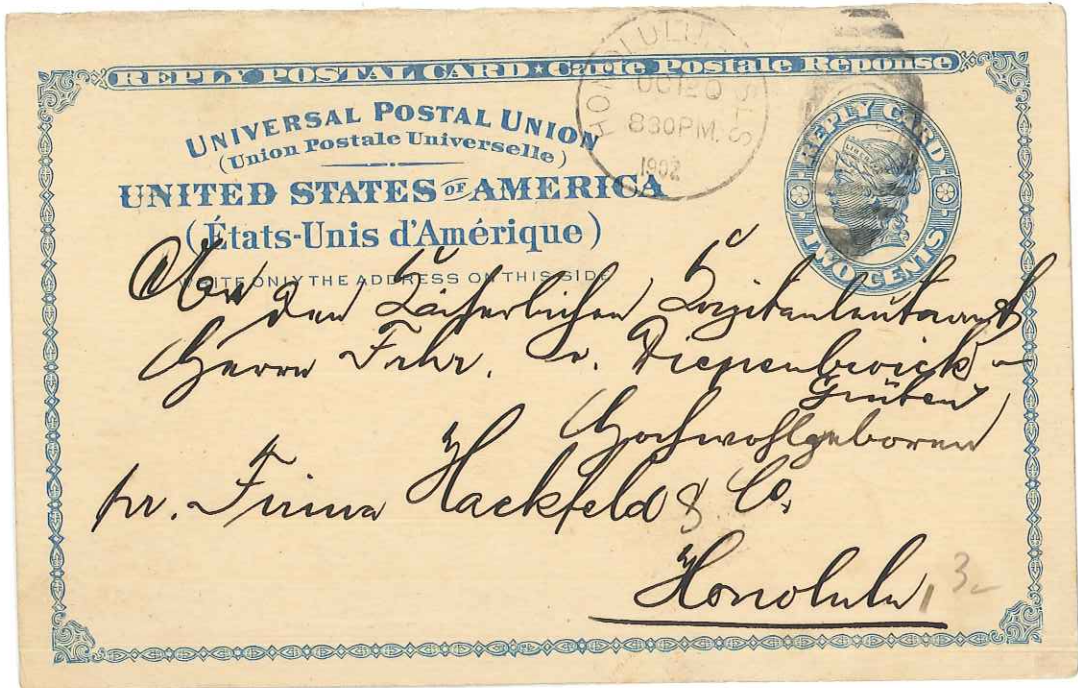 REPLY POSTAL CARD ★ Carte Postale Réponse
UNIVERSAL POSTAL UNION
(Union Postale Universelle)
UNITED STATES OF AMERICA
(États-Unis d'Amérique)
WRITE ONLY THE ADDRESS ON THIS SIDE
HONOLULU
830 PM.
1902
REPLY CARD
LIBERTY
TWO CENTS
den Kaiserlichen Kapitanleutnant
Herrn Frhr. v. Diepenbroick-
Grüter
Hochwohlgeboren
pr. Firma Hackfeld & Co.
Honolulu
3-